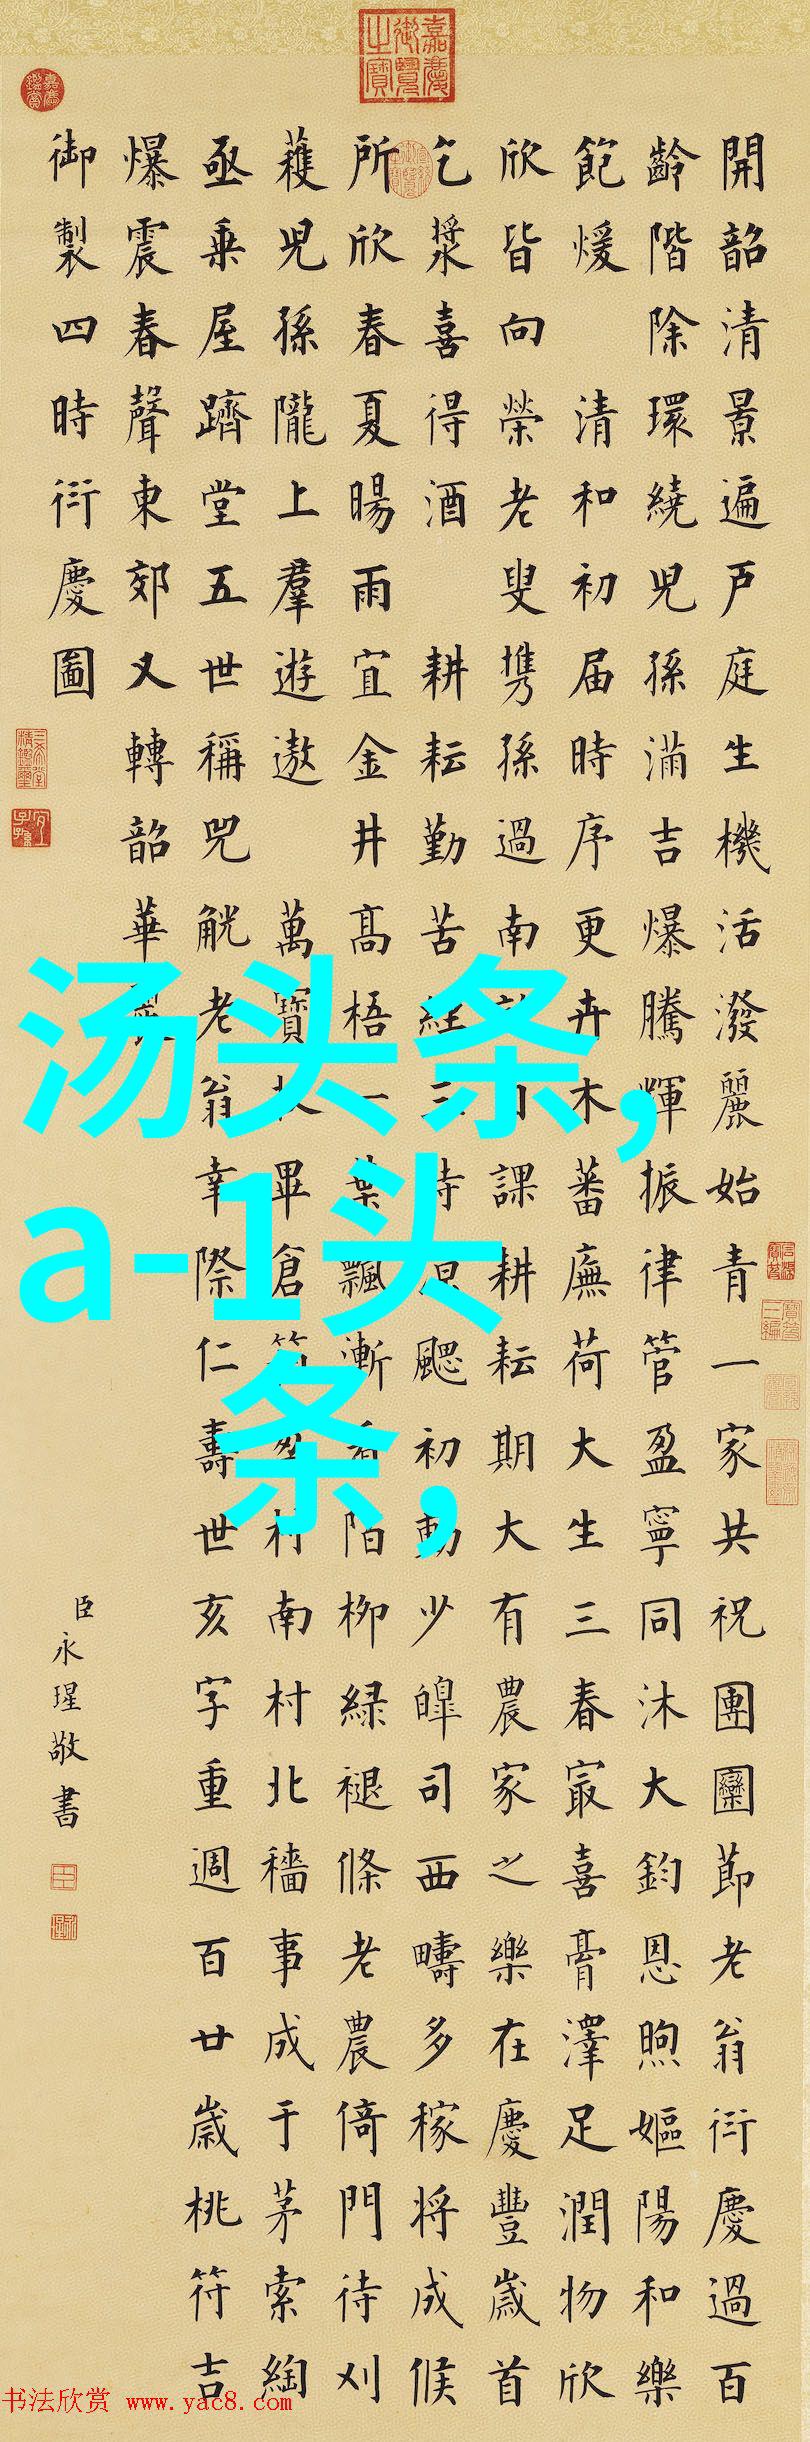 嘉慶御覽之寶
嘉慶鑑賞
開韶清景遍戶庭生機活潑麗始青一家共祝團圞節老翁衍慶過百
齡階除環繞兒孫滿吉爆騰輝振律管盈寧同沐大鈞恩煦嫗陽和樂
飽煖 清和初届時序更卉木蕃廡荷大生三春冣喜膏澤足潤物欣
欣皆向榮老叟携孫過南課耕耘期大有農家之樂在慶豐歲首
乞漿喜得酒 耕耘勤苦經三時涼颸初動少皞司西疇多稼将成候
所欣春夏暘雨宜金井高梧一葉飄漸看陌柳緑褪條老農倚門待刈
穫兒孫隴上羣遊遨 萬寶畢倉村南村北穡事成于茅索綯
亟乗屋躋堂五世稱兕觥老翁幸際仁壽世亥字重週百廿歲桃符吉
爆震春聲東郊又轉韶華麗
御製四時衍慶圖
臣永瑆敬書
三希堂精鑑璽
宜子孫
汤头条,
a-1头
条,
书法欣赏 www.yac8.com